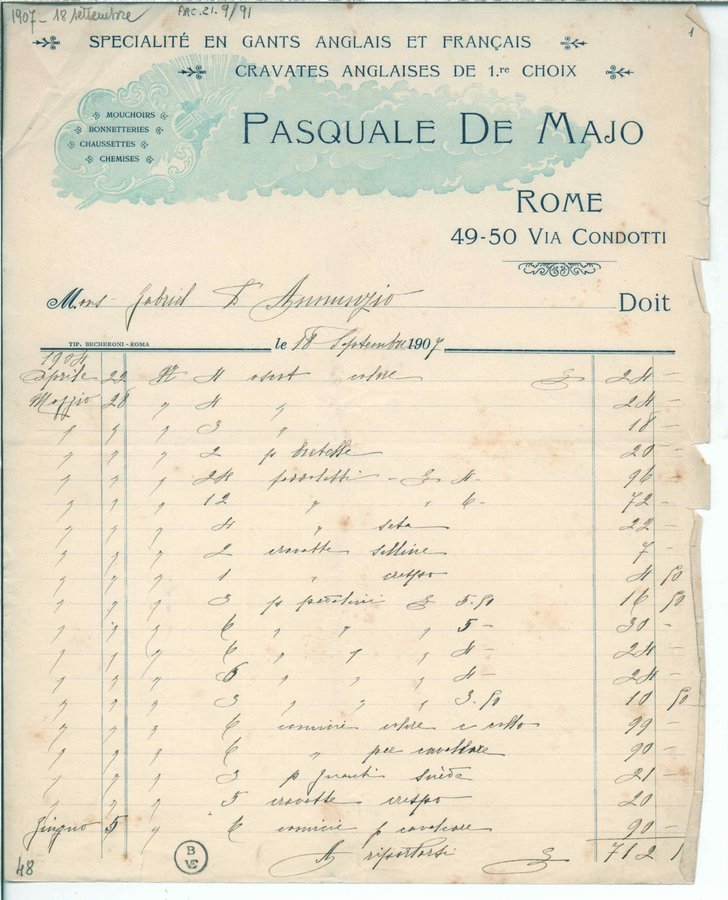 1907 - 18 settembre
ARC.21.9/91
1
SPECIALITÉ EN GANTS ANGLAIS ET FRANÇAIS
CRAVATES ANGLAISES DE 1.re CHOIX
MOUCHOIRS
BONNETTERIES
CHAUSSETTES
CHEMISES
PASQUALE DE MAJO
ROME
49-50 VIA CONDOTTI
Mons Gabriel D'Annunzio Doit
TIP. BECHERONI - ROMA
le 18 Septembre 1907
1904
Aprile 22 4 colore 24 -
Maggio 28 " 4 " 24 -
" " " 3 " 18 -
" " " 2 p bretelle 20 -
" " " 24 fazzoletti - 4 - 96
" " " 12 " " 6 - 72 -
" " " 4 " seta 22 -
" " " 2 cravatte 7 -
" " " 1 " crespo 4 50
" " " 3 p pedalini 5.50 16 50
" " " 6 " " " 5 - 30 -
" " " 6 " " " 4 - 24 -
" " " 6 " " " 4 - 24 -
" " " 3 " " " 3.50 10 50
" " " 6 camicie colore c collo 99 -
" " " 6 " per cavallare 90 -
" " " 3 p guanti Suède 21 -
" " " 5 cravatte crespo 20
Giugno 5 " 6 camicie p cavalcare 90 -
A riportarsi 712 1
B
VE
48